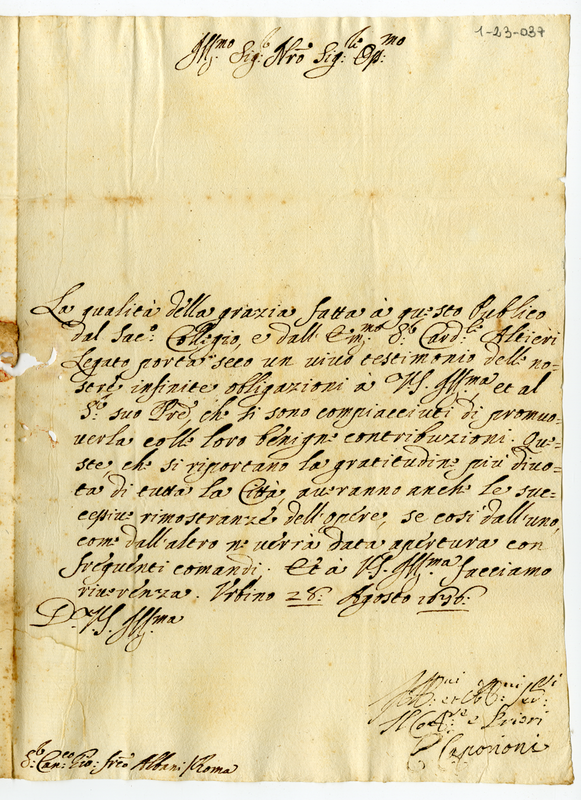 1-23-037
Ill:mo Sig:r Nro Sig:re Oss:mo
La qualità della grazia fatta à questo Publico
dal Sac:o Collegio, e dall' Em:mo S:r Card:le Altieri
Legato porta seco un vivo testimonio delle no=
stre infinite obligazioni à VS. Ill:ma, et al
S:r suo Pre che si sono compiacciuti di promuo=
uerla colle loro benigne contribuzioni. Que=
ste che si riportano la gratitudine piu diuo=
ta di tutta la Città, aueranno anche le suc=
cessiue rimostranze dell'opere, se cosi dall'uno,
come dall'altro ne uerrà data apertura con
frequenti comandi. Et à VS. Ill:ma facciamo
riuerenza. Urbino 28. Agosto
D. VS. Ill:ma
Il Conf:re e Priori
Caponioni
S:r Can:co Gio: Fran:co Albani / Roma